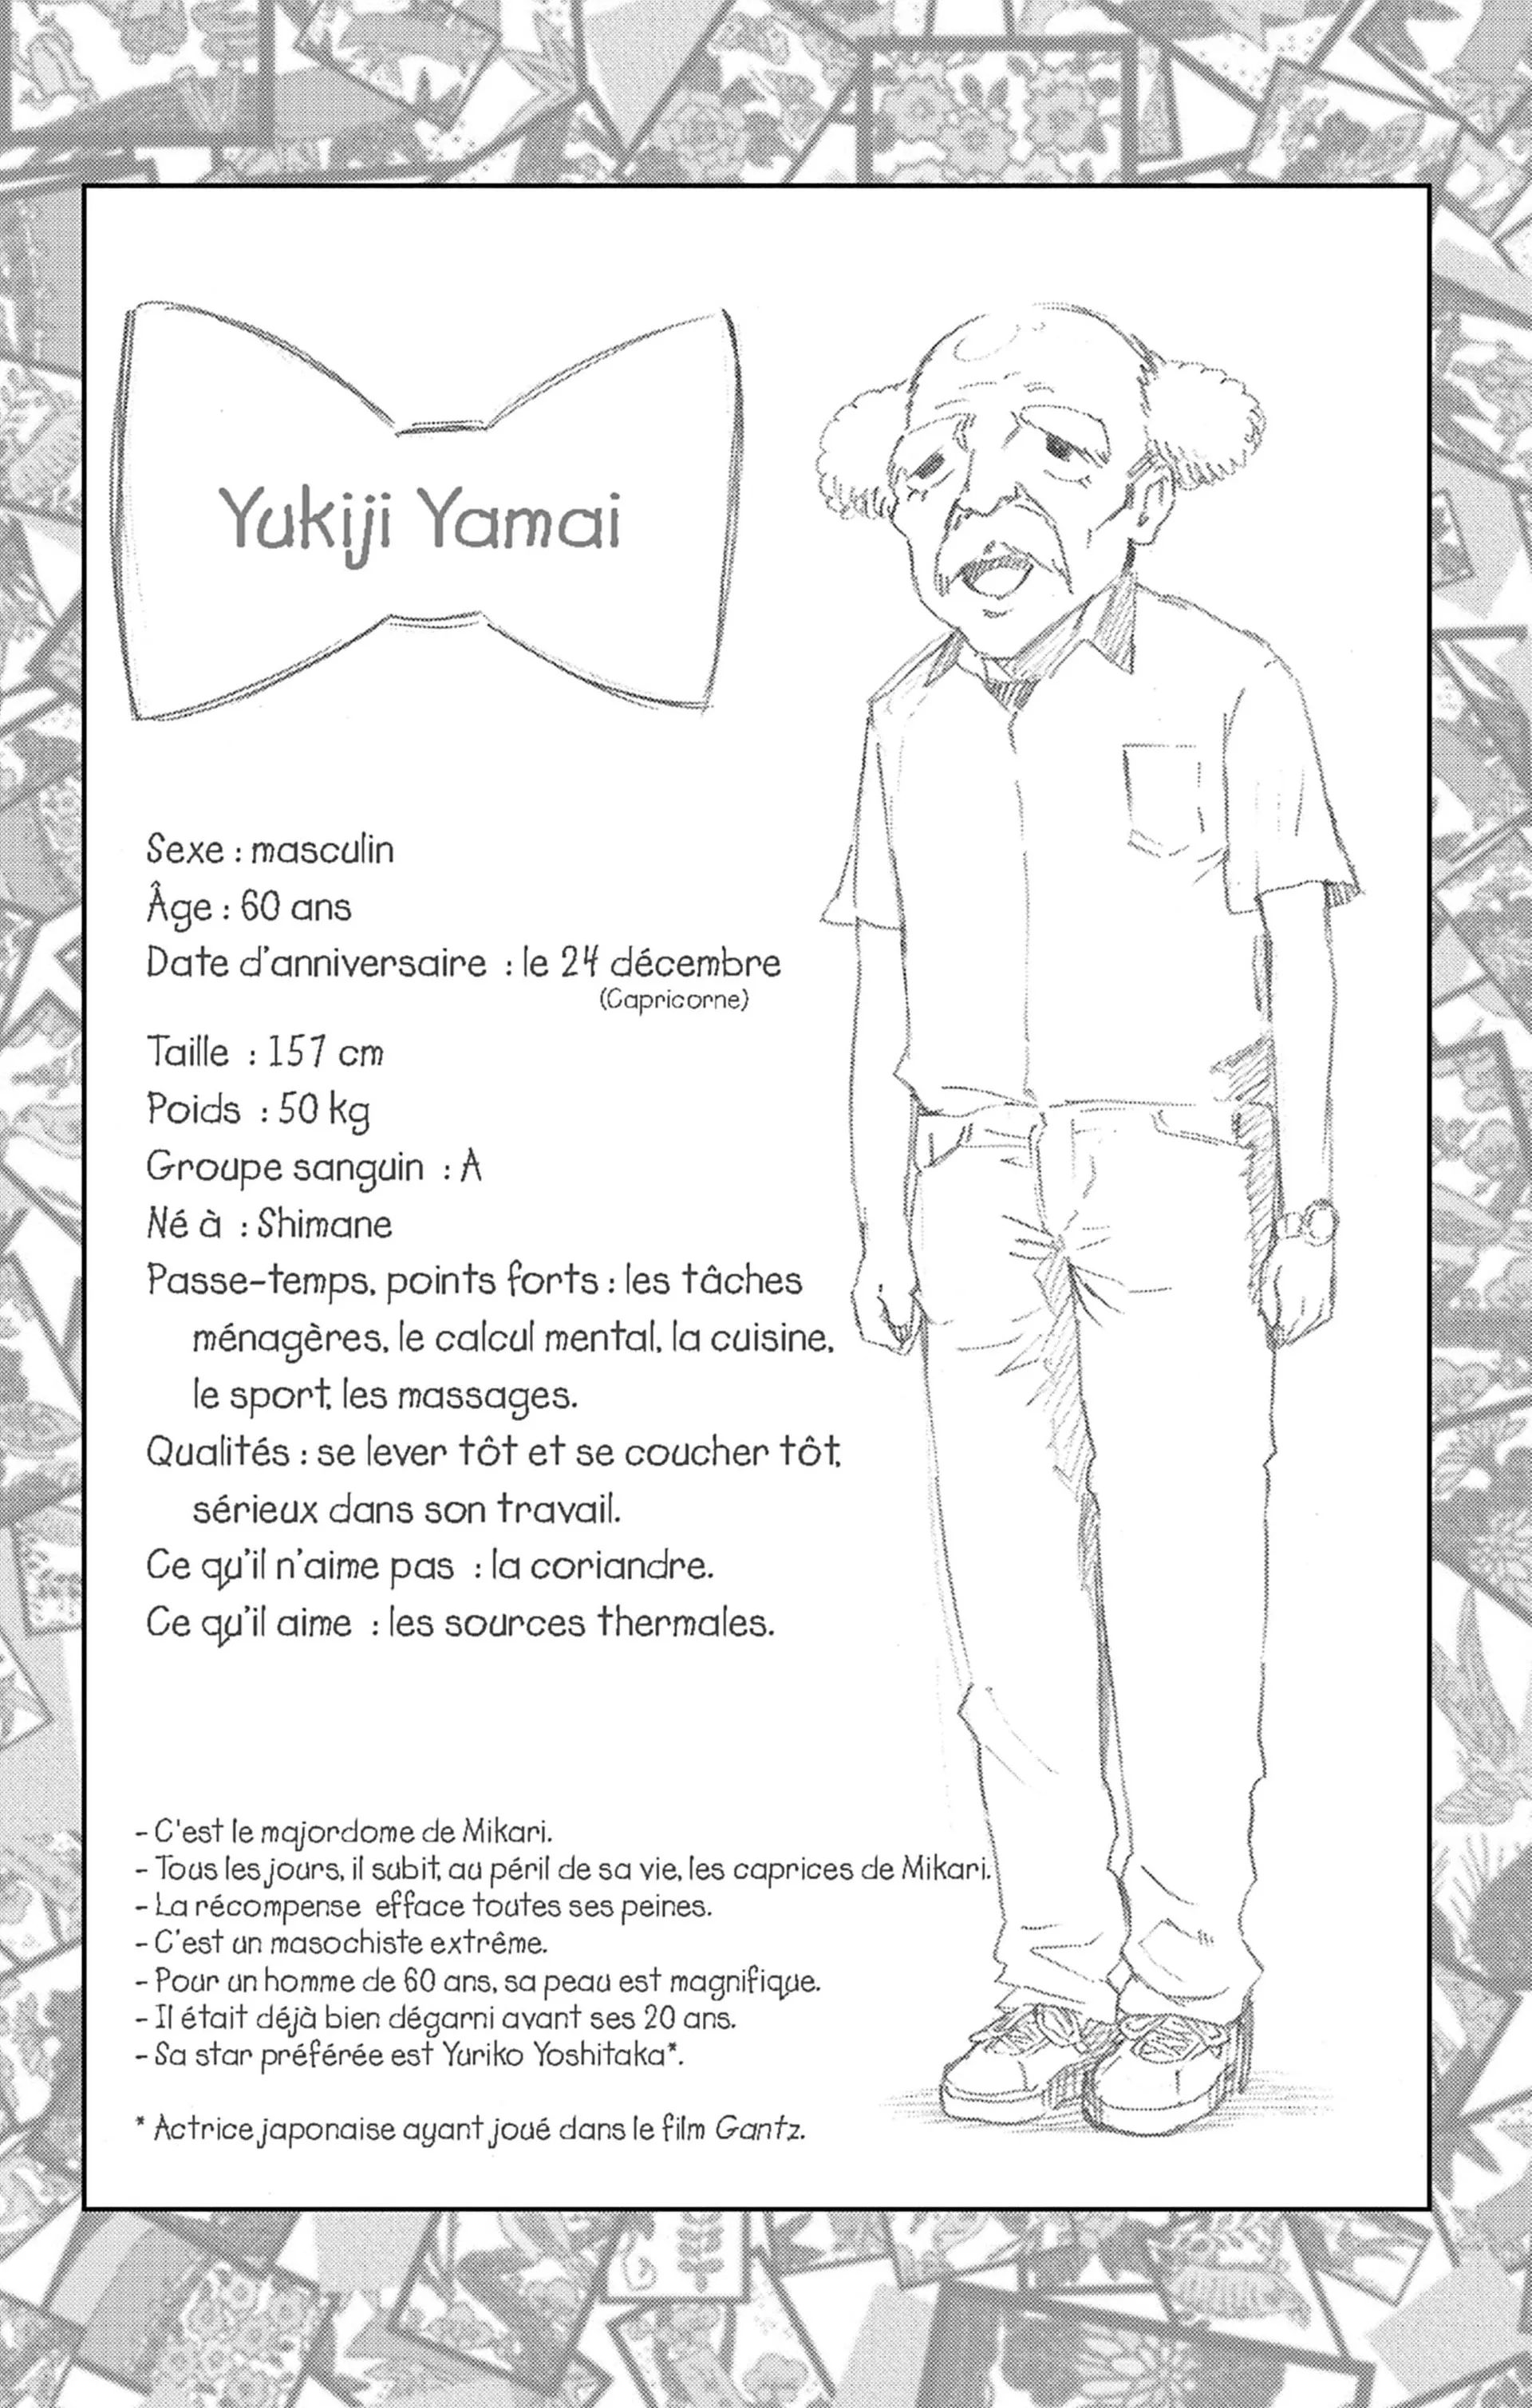 Yukiji Yamai
Sexe : masculin
Âge : 60 ans
Date d'anniversaire : le 24 décembre
(Capricorne)
Taille : 157 cm
Poids : 50 kg
Groupe sanguin : A
Né à : Shimane
Passe-temps, points forts : les tâches
ménagères, le calcul mental, la cuisine,
le sport, les massages.
Qualités : se lever tôt et se coucher tôt,
sérieux dans son travail.
Ce qu'il n'aime pas : la coriandre.
Ce qu'il aime : les sources thermales.
- C'est le majordome de Mikari.
- Tous les jours, il subit, au péril de sa vie, les caprices de Mikari.
- La récompense efface toutes ses peines.
- C'est un masochiste extrême.
- Pour un homme de 60 ans, sa peau est magnifique.
- Il était déjà bien dégarni avant ses 20 ans.
- Sa star préférée est Yuriko Yoshitaka*.
* Actrice japonaise ayant joué dans le film Gantz.